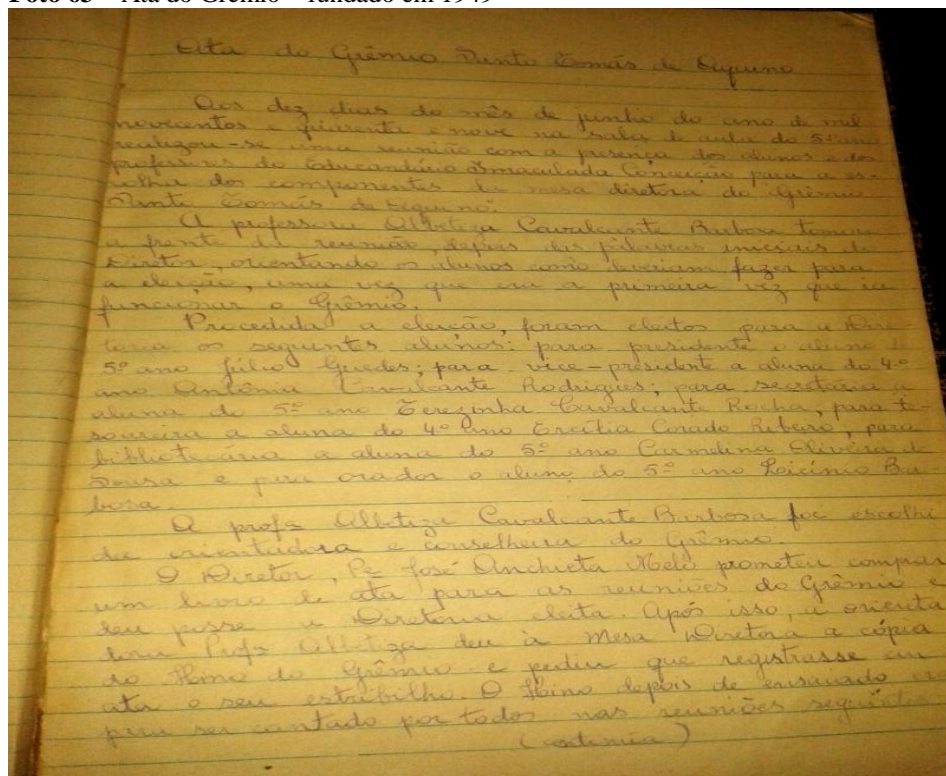 Foto 03 – Ata do Grêmio – fundado em 1949
Ata do Grêmio Santo Tomás de Aquino
Aos dez dias do mês de junho do ano de mil
novecentos e quarenta e nove na sala de aula do 5º ano
realizou-se uma reunião com a presença dos alunos e dos
professores do Educandário Imaculada Conceição para a es-
colha dos componentes da mesa diretora do Grêmio
Santo Tomás de Aquino".
A professora Albetiza Cavalcante Barbosa tomou
a frente da reunião, depois das palavras iniciais do
Diretor, orientando os alunos como deveriam fazer para
a eleição, uma vez que era a primeira vez que ia
funcionar o Grêmio.
Procedida a eleição, foram eleitos para a Dire-
toria os seguintes alunos: para presidente o aluno do
5º ano Júlio Guedes; para vice-presidente a aluna do 4º
ano Antônia Cavalcante Rodrigues; para secretária a
aluna do 5º ano Terezinha Cavalcante Rocha, para te-
soureira a aluna do 4º ano Ercília Corado Ribeiro, para
bibliotecária a aluna do 5º ano Carmelina Oliveira de
Sousa e para orador o aluno do 5º ano Loicínio Bar-
bosa.
A profª Albetiza Cavalcante Barbosa foi escolhi
da orientadora e conselheira do Grêmio.
O Diretor, Pe José Anchieta Melo prometeu comprar
um livro de ata para as reuniões do Grêmio e
deu posse a Diretoria eleita Após isso, a orienta
dora Profª Albetiza deu à Mesa Diretora a cópia
do Hino do Grêmio e pediu que registrasse em
ata o seu estribilho. O Hino depois de ensinado
para ser cantado por todos nas reuniões seguintes
(continua)